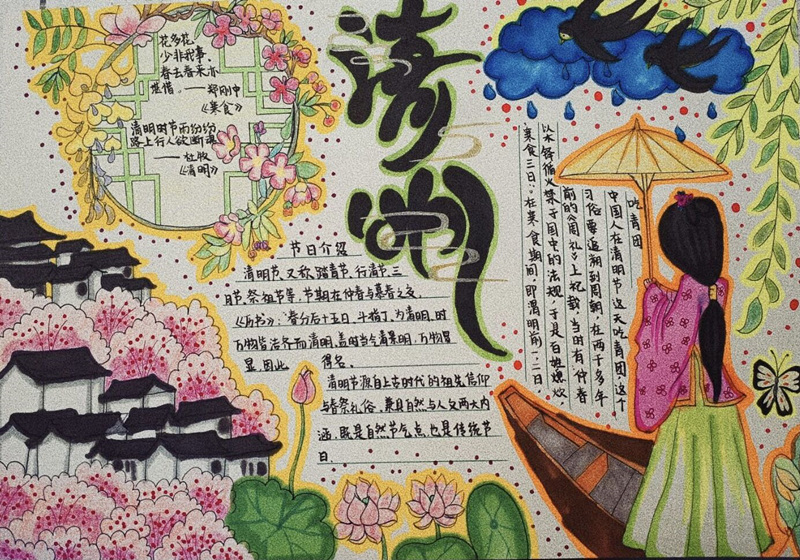 清明
花多花
少非我事,
春去春来亦
难惜。——郑刚中
《寒食》
清明时节雨纷纷
路上行人欲断魂
——杜牧
《清明》
节日介绍
清明节,又称踏青节、行清节、三
月节、祭祖节等,节期在仲春与暮春之交。
《历书》:“春分后十五日,斗指丁,为清明,时
万物皆洁齐而清明,盖时当气清景明,万物显
显,因此 得名。
清明节源自上古时代的祖先信仰
与春祭礼俗,兼具自然与人文两大内
涵,既是自然节气点,也是传统节
日。
吃青团
中国人在清明节这天吃青团这个
习俗要追溯到周朝,在两千多年
前的《周礼》上记载,当时有仲春
以木铎循火禁于国中的法规,于是百姓熄炊,
寒食三日。在寒食期间,即清明前一二日